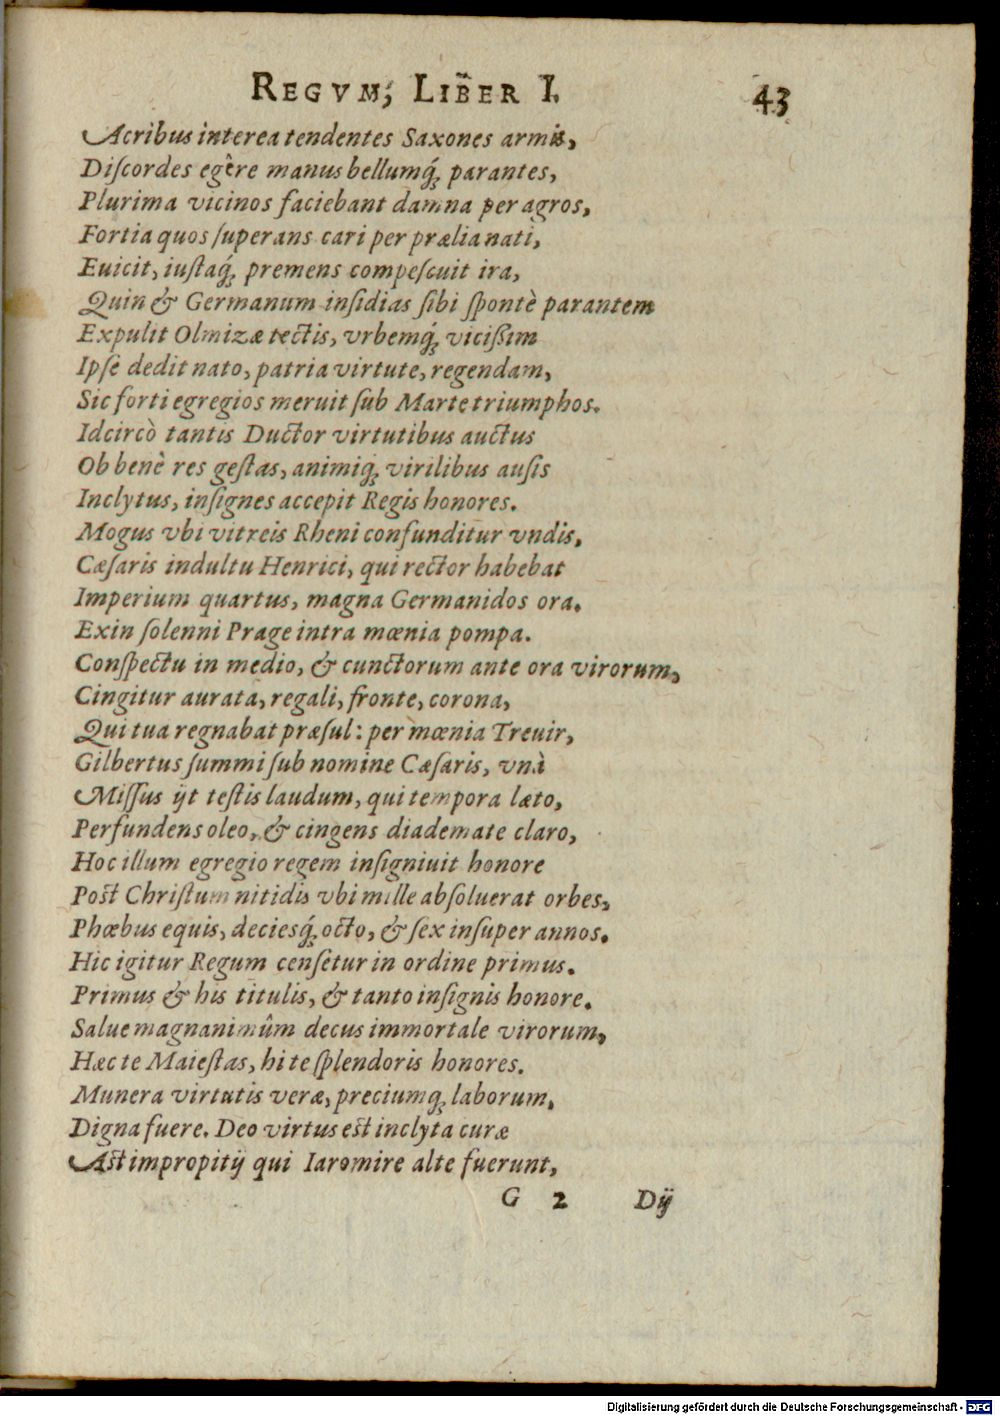 REGVM, LIBER I. 43
Acribus interea tendentes Saxones armis,
Diſcordes egêre manus bellumq́; parantes,
Plurima vicinos faciebant damna per agros,
Fortia quos ſuperans cari per prælia nati,
Euicit, iuſtaq́; premens compeſcuit ira,
Quin & Germanum inſidias ſibi ſpontè parantem
Expulit Olmizæ tectis, vrbemq́; viciſſim
Ipſe dedit nato, patria virtute, regendam,
Sic forti egregios meruit ſub Marte triumphos.
Idcircò tantis Ductor virtutibus auctus
Ob benè res geſtas, animiq́; virilibus auſis
Inclytus, inſignes accepit Regis honores.
Mogus vbi vitreis Rheni confunditur vndis,
Cæſaris indultu Henrici, qui rector habebat
Imperium quartus, magna Germanidos ora.
Exin ſolenni Prage intra mœnia pompa.
Conſpectu in medio, & cunctorum ante ora virorum,
Cingitur aurata, regali, fronte, corona,
Qui tua regnabat præſul: per mœnia Treuir,
Gilbertus ſummi ſub nomine Cæſaris, vnà
Miſſus ijt teſtis laudum, qui tempora læto,
Perfundens oleo, & cingens diademate claro,
Hoc illum egregio regem inſigniuit honore
Poſt Chriſtum nitidis vbi mille abſoluerat orbes,
Phœbus equis, deciesq́; octo, & ſex inſuper annos.
Hic igitur Regum cenſetur in ordine primus.
Primus & his titulis, & tanto inſignis honore.
Salue magnanimûm decus immortale virorum,
Hæc te Maieſtas, hi te ſplendoris honores.
Munera virtutis veræ, preciumq́; laborum,
Digna fuere. Deo virtus eſt inclyta curæ
Aſt impropitij qui Iaromire alte fuerunt,
G 2 Dij
Digitalisierung gefördert durch die Deutsche Forschungsgemeinschaft - DFG